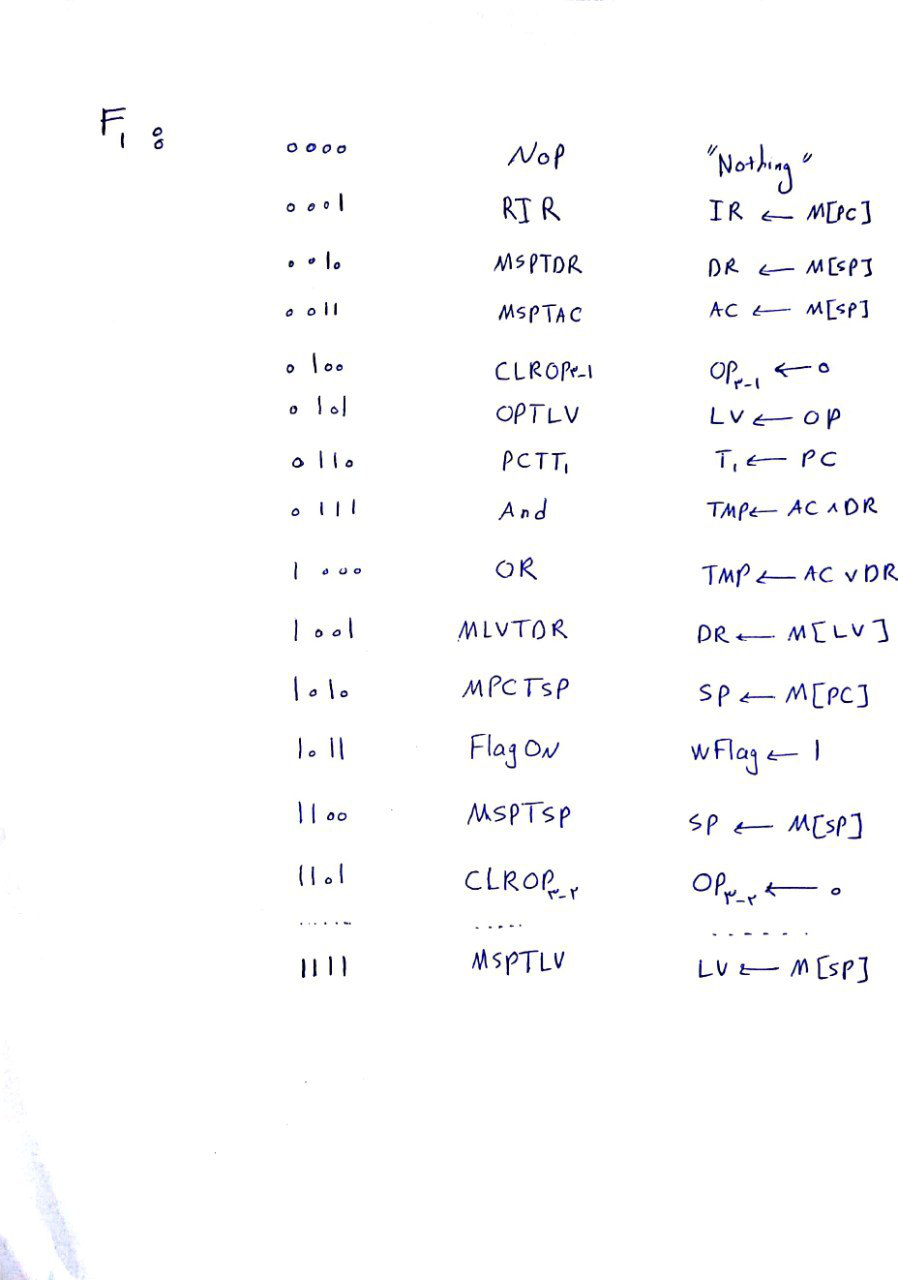 F₁ :
0000 NOP "Nothing"
0001 RIR IR ← M[PC]
0010 MSPTDR DR ← M[SP]
0011 MSPTAC AC ← M[SP]
0100 CLROP۳-1 OP۳-1 ← 0
0101 OPTLV LV ← OP
0110 PCTT₁ T₁ ← PC
0111 And TMP ← AC ∧ DR
1000 OR TMP ← AC ∨ DR
1001 MLVTDR DR ← M[LV]
1010 MPCTSP SP ← M[PC]
1011 Flag ON wFlag ← 1
1100 MSPTSP SP ← M[SP]
1101 CLROP۳-۲ OP۳-۲ ← 0
...... ..... ......
1111 MSPTLV LV ← M[SP]